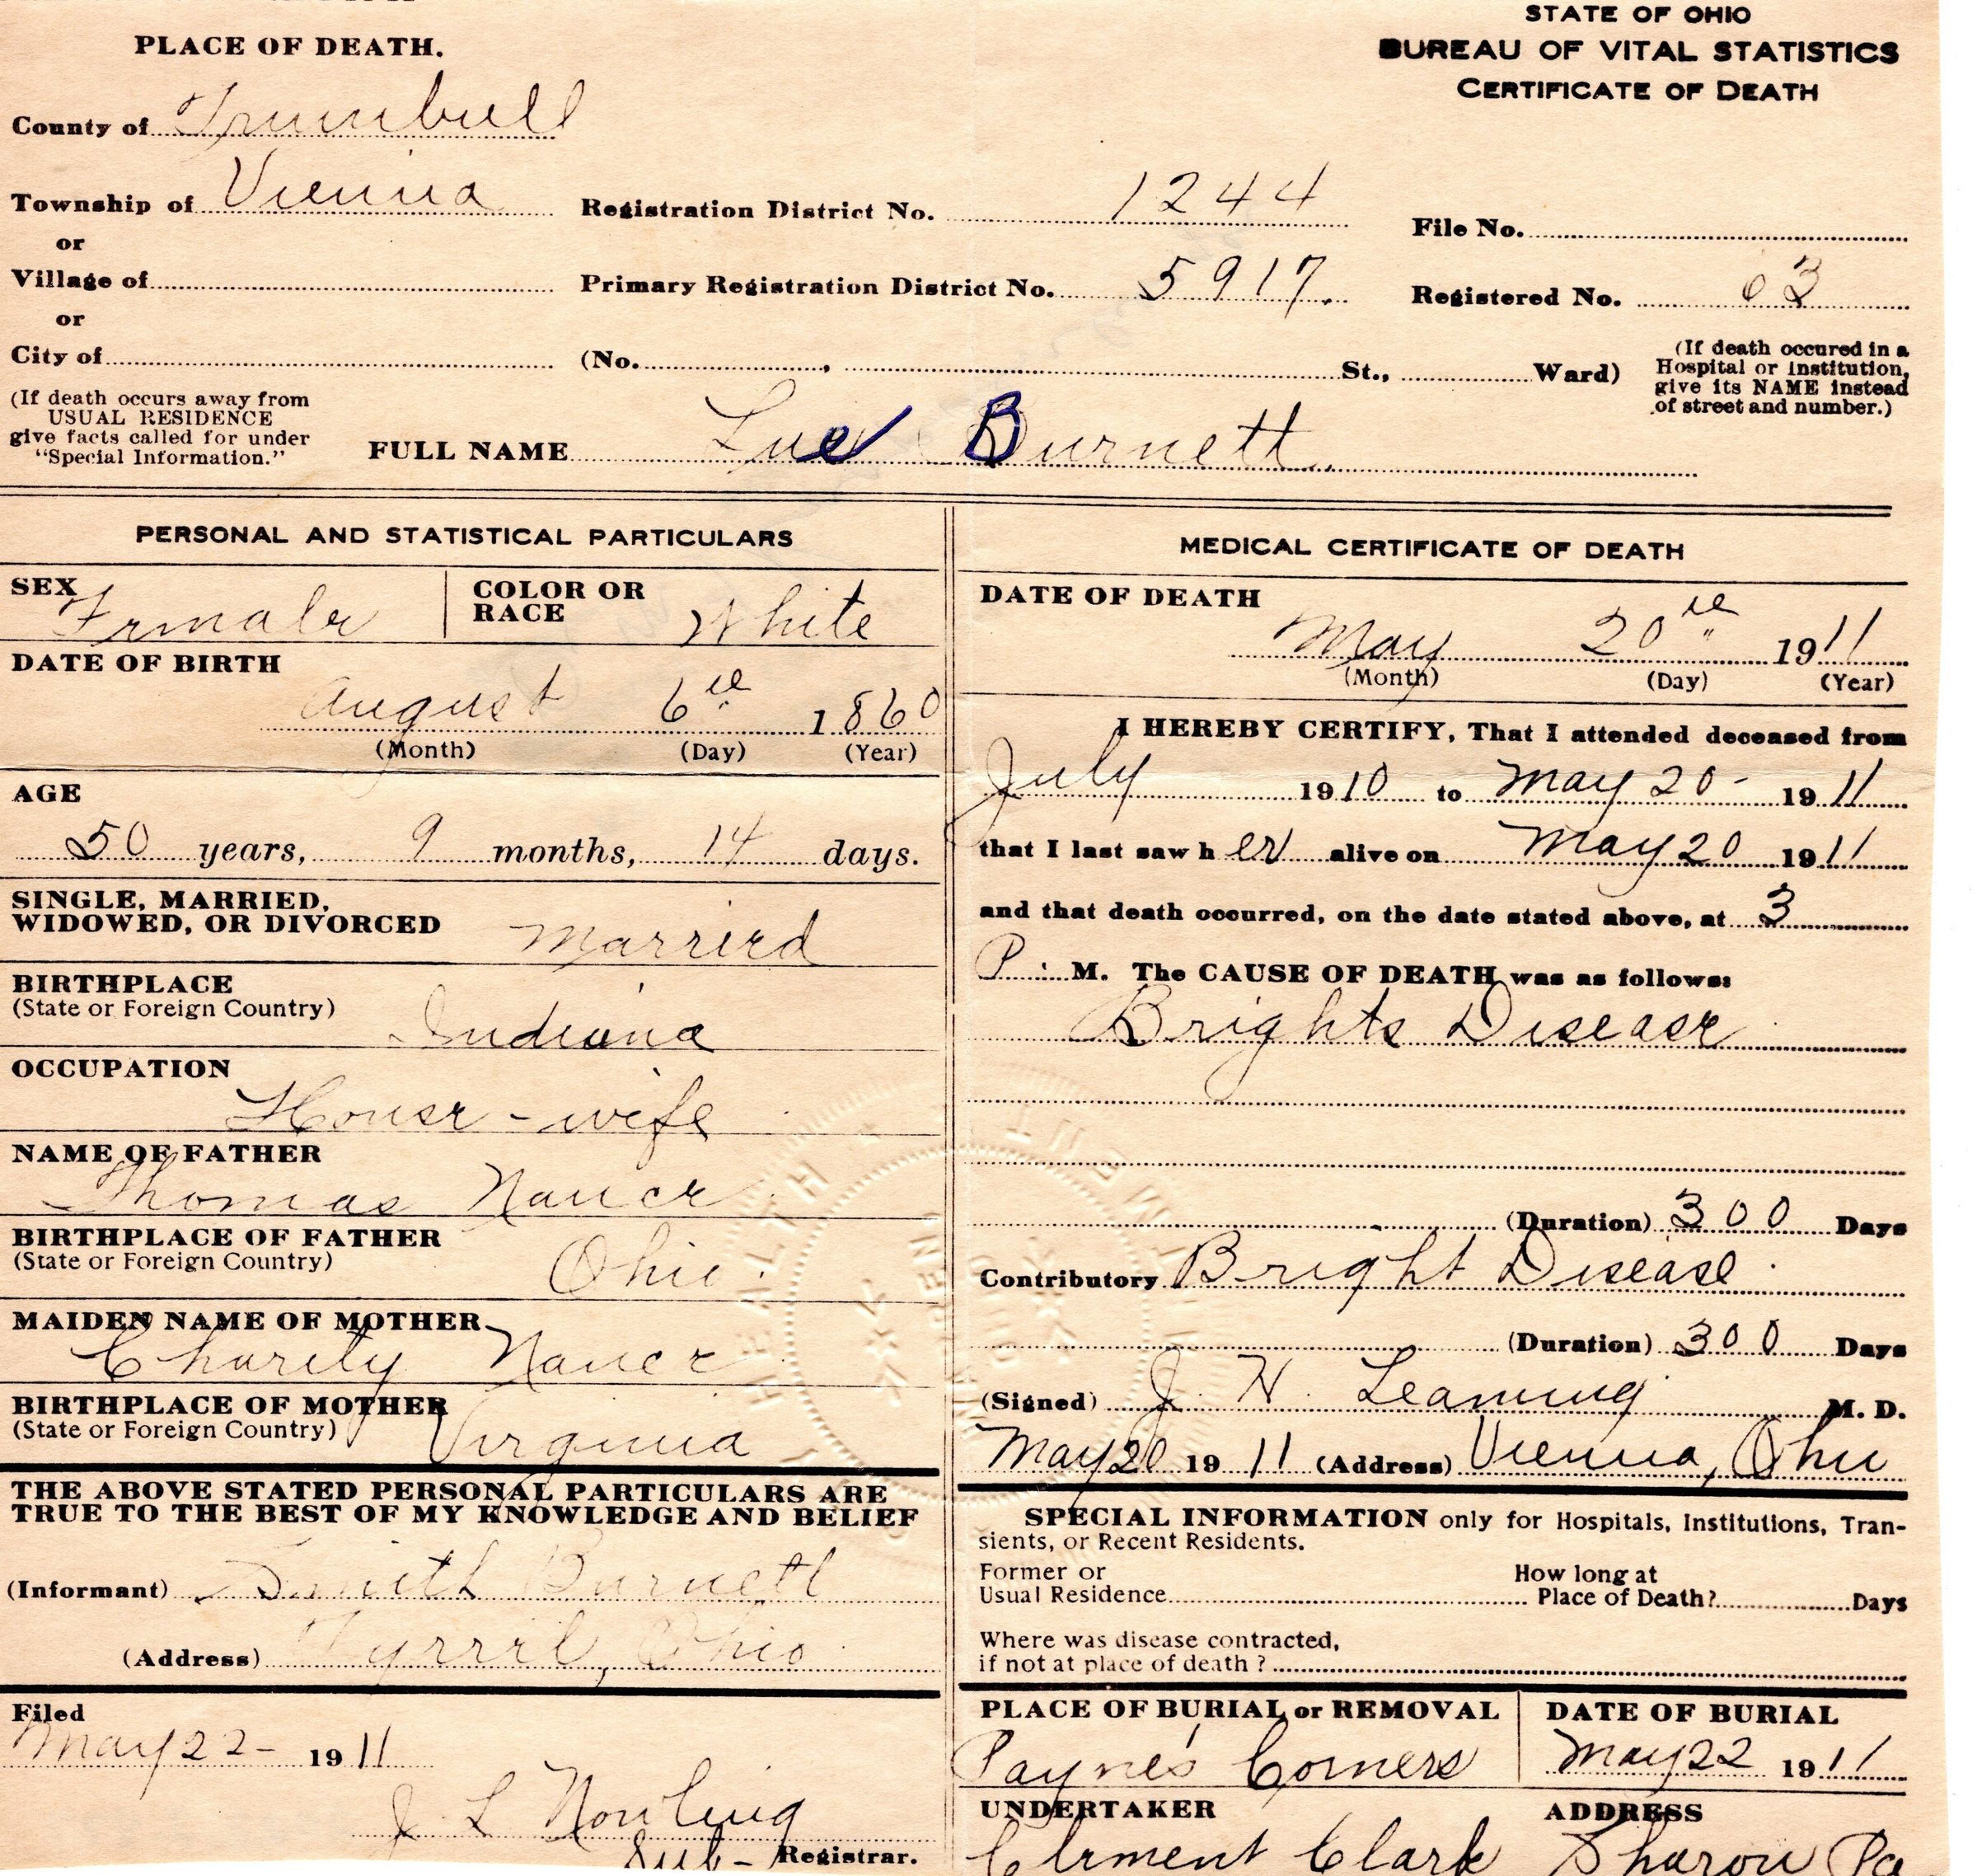 STATE OF OHIO
BUREAU OF VITAL STATISTICS
CERTIFICATE OF DEATH
PLACE OF DEATH.
County of Trumbull
Township of Vienna Registration District No. 1244 File No.
or
Village of Primary Registration District No. 5917. Registered No. 63
or
City of (No. , St., Ward)
(If death occured in a
Hospital or institution,
give its NAME instead
of street and number.)
(If death occurs away from
USUAL RESIDENCE
give facts called for under
"Special Information."
FULL NAME Lue Burnett
PERSONAL AND STATISTICAL PARTICULARS
SEX Female COLOR OR RACE White
DATE OF BIRTH
August 6th 1860
(Month) (Day) (Year)
AGE
50 years, 9 months, 14 days.
SINGLE, MARRIED,
WIDOWED, OR DIVORCED Married
BIRTHPLACE
(State or Foreign Country) Indiana
OCCUPATION
House-wife
NAME OF FATHER
Thomas Nance
BIRTHPLACE OF FATHER
(State or Foreign Country) Ohio
MAIDEN NAME OF MOTHER
Charity Nance
BIRTHPLACE OF MOTHER
(State or Foreign Country) Virginia
THE ABOVE STATED PERSONAL PARTICULARS ARE
TRUE TO THE BEST OF MY KNOWLEDGE AND BELIEF
(Informant) Smith Burnett
(Address) Tyrrel, Ohio
Filed
May 22- 1911
J L
Sub- Registrar.
MEDICAL CERTIFICATE OF DEATH
DATE OF DEATH
May 20th 1911
(Month) (Day) (Year)
I HEREBY CERTIFY, That I attended deceased from
July 1910 to May 20- 1911
that I last saw her alive on May 20 1911
and that death occurred, on the date stated above, at 3
P. M. The CAUSE OF DEATH was as follows:
Brights Disease
(Duration) 300 Days
Contributory Bright Disease
(Duration) 300 Days
(Signed) J. H. Leaming M. D.
May 20 1911 (Address) Vienna, Ohio
SPECIAL INFORMATION only for Hospitals, Institutions, Tran-
sients, or Recent Residents.
Former or How long at
Usual Residence Place of Death? Days
Where was disease contracted,
if not at place of death ?
PLACE OF BURIAL or REMOVAL DATE OF BURIAL
Payne's Corners May 22 1911
UNDERTAKER ADDRESS
Clement Clark Sharon Pa